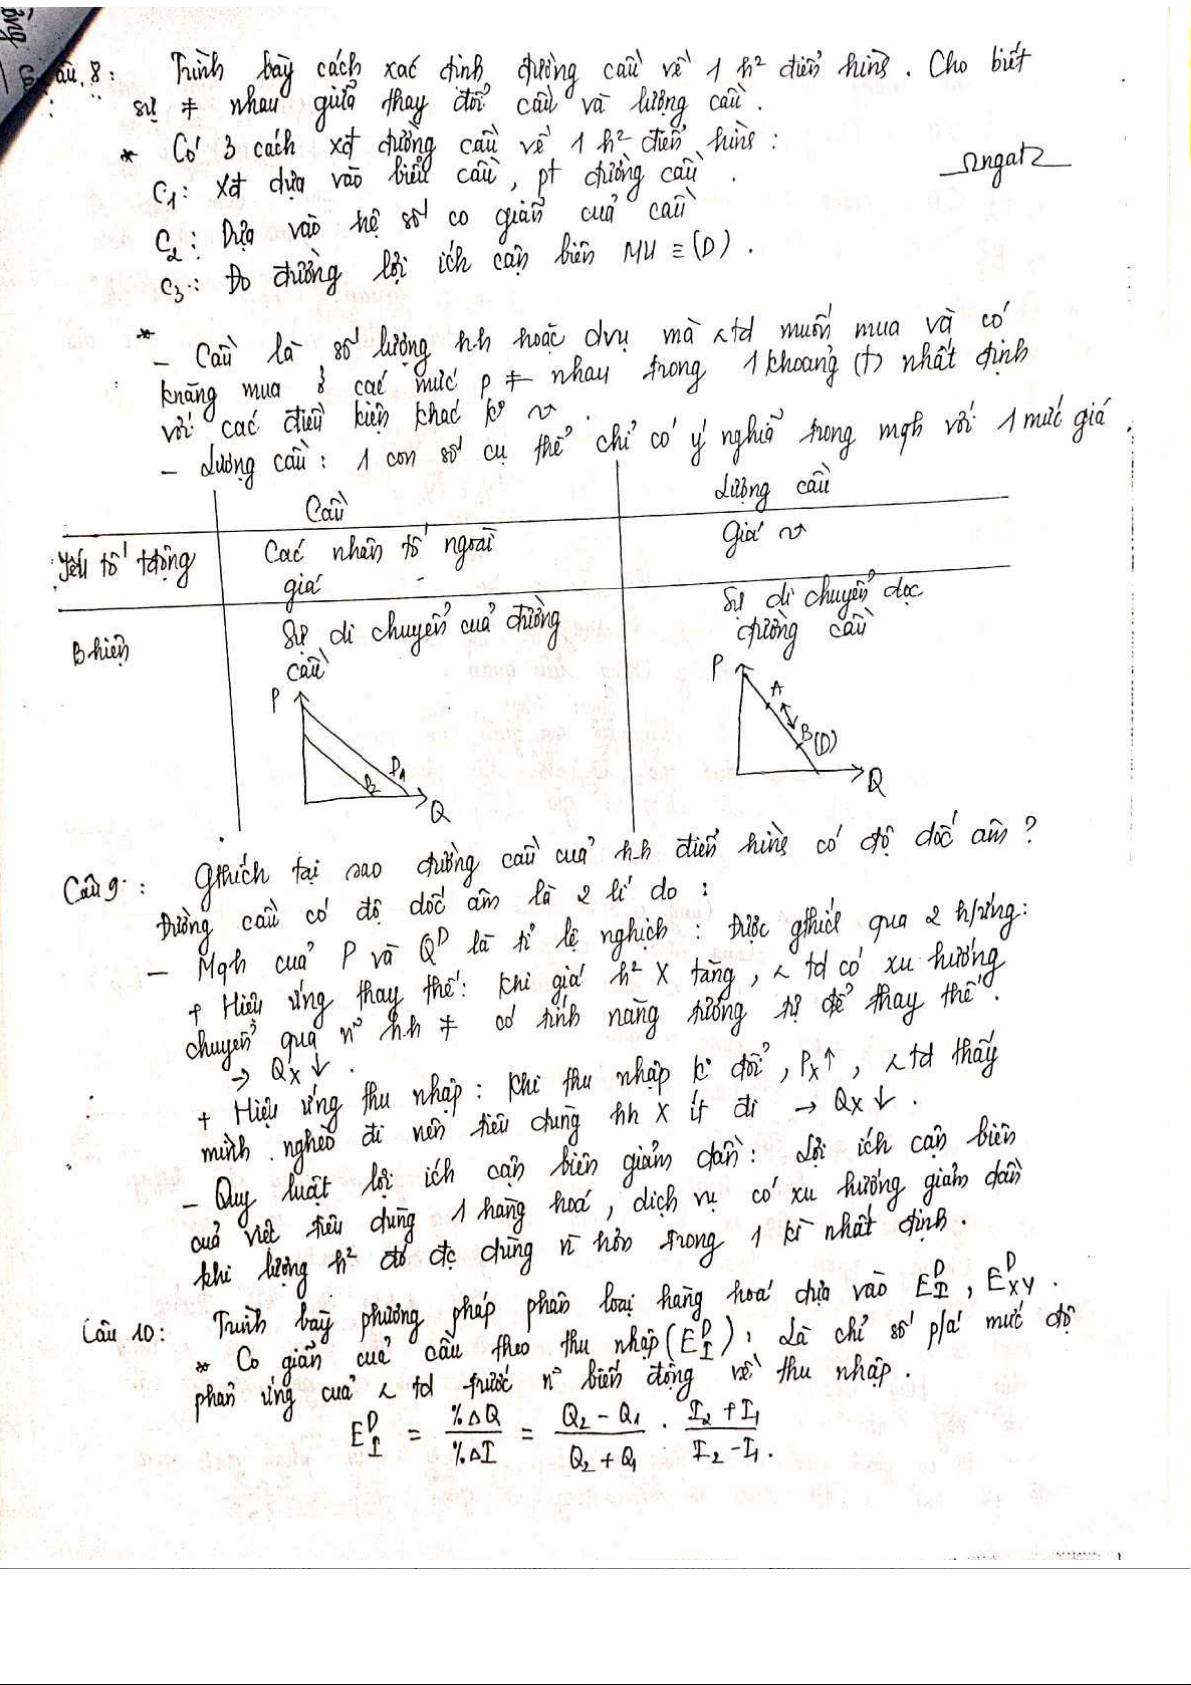 Câu 8: Trình bày cách xác định đường cầu về 1 h² điển hình. Cho biết
sự ≠ nhau giữa thay đổi cầu và lượng cầu.
* Có 3 cách xđ đường cầu về 1 h² điển hình:
C1: Xđ dựa vào biểu cầu, pt đường cầu.
C2: Dựa vào hệ số co giãn của cầu
C3: Do đường lợi ích cận biên MU ≡ (D).
* – Cầu là số lượng h.h hoặc dvụ mà td muốn mua và có
knăng mua ở các mức p ≠ nhau trong 1 khoảng (t) nhất định
với các điều kiện khác k°
– Lượng cầu: 1 con số cụ thể chỉ có ý nghĩa trong mqh với 1 mức giá.
Cầu Lượng cầu
Yếu tố tđộng Các nhân tố ngoài Giá
giá
B hiện Sự di chuyển của đường Sự di chuyển dọc
cầu đường cầu
P P
A
B (D)
Q Q
Câu 9: Gthích tại sao đường cầu của h.h điển hình có độ dốc âm?
Đường cầu có độ dốc âm là 2 lí do:
– Mqh của P và Q^D là tỉ lệ nghịch: Được gthích qua 2 h/ứng:
+ Hiệu ứng thay thế: Khi giá h² X tăng, td có xu hướng
chuyển qua n~ h.h ≠ có tính năng tương tự để thay thế.
→ Qx ↓.
+ Hiệu ứng thu nhập: Khi thu nhập k° đổi, Px↑, td thấy
mình nghèo đi nên tiêu dùng hh X ít đi → Qx ↓.
– Quy luật lợi ích cận biên giảm dần: Lợi ích cận biên
của việc tiêu dùng 1 hàng hoá, dịch vụ có xu hướng giảm dần
khi lượng h² đó đc dùng n~ hơn trong 1 kì nhất định.
Câu 10: Trình bày phương pháp phân loại hàng hoá dựa vào E^D_I, E^D_XY.
* Co giãn của cầu theo thu nhập (E^D_I): Là chỉ số p/á mức độ
phản ứng của td trước n~ biến động về thu nhập.
E^D_I = %ΔQ / %ΔI = (Q2 – Q1) / (Q2 + Q1) . (I2 + I1) / (I2 – I1).